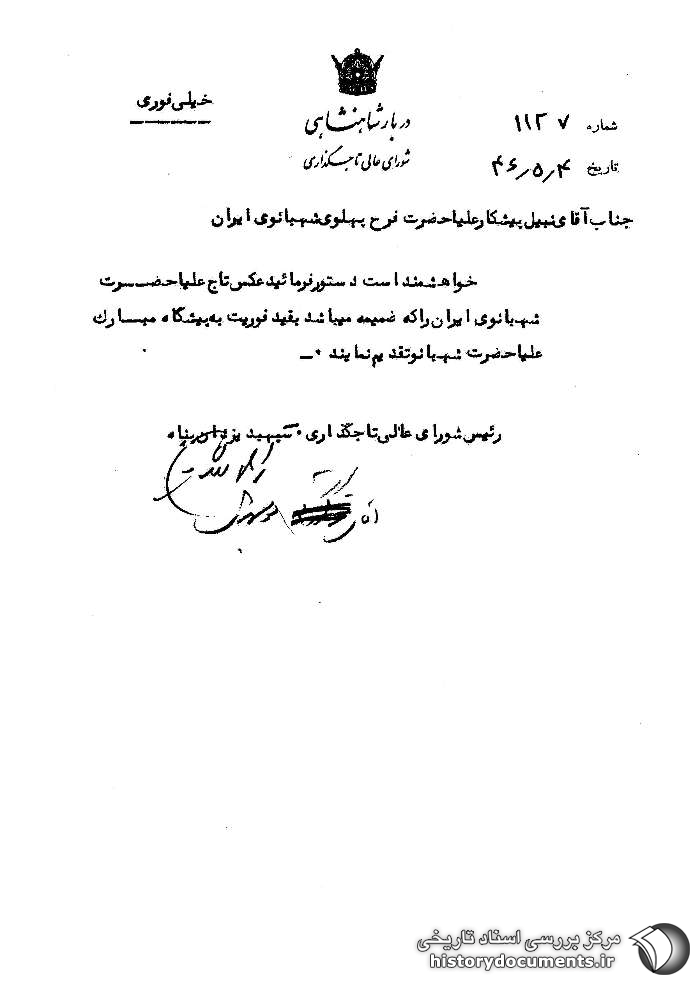 خیلی فوری
دربار شاهنشاهی
شورای عالی تاجگذاری
شماره ۱۱۲۷
تاریخ ۴۶/۵/۴
جناب آقای نبیل پیشکار علیاحضرت فرح پهلوی شهبانوی ایران
خواهشمند است دستور فرمائید عکس تاج علیاحضـــرت
شهبانوی ایران را که ضمیمه میباشد بقید فوریت به پیشگاه مبـارک
علیاحضرت شهبانو تقدیم نمایند ۰ـ
رئیس شورای عالی تاجگذاری ۰ سپهبد یزدان پناه
مرکز بررسی اسناد تاریخی
historydocuments.ir